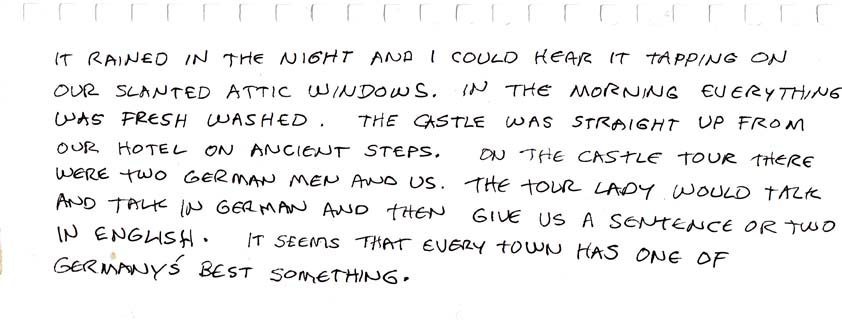 IT RAINED IN THE NIGHT AND I COULD HEAR IT TAPPING ON
OUR SLANTED ATTIC WINDOWS. IN THE MORNING EVERYTHING
WAS FRESH WASHED. THE CASTLE WAS STRAIGHT UP FROM
OUR HOTEL ON ANCIENT STEPS. ON THE CASTLE TOUR THERE
WERE TWO GERMAN MEN AND US. THE TOUR LADY WOULD TALK
AND TALK IN GERMAN AND THEN GIVE US A SENTENCE OR TWO
IN ENGLISH. IT SEEMS THAT EVERY TOWN HAS ONE OF
GERMANY'S BEST SOMETHING.